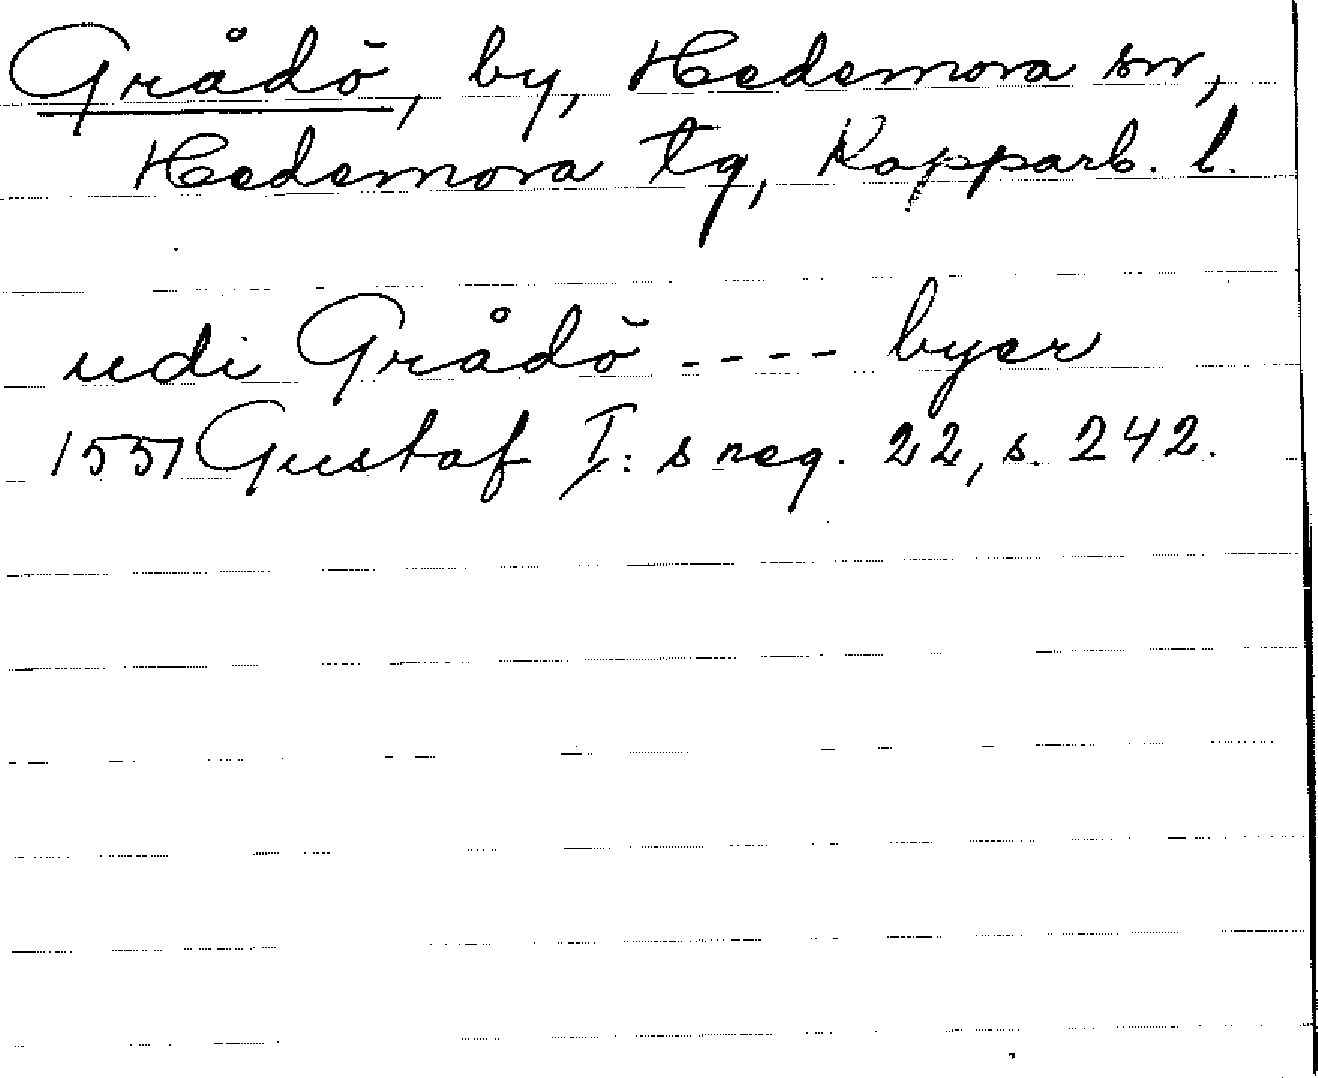 Grådö, by, Hedemora sn,
Hedemora tg, Kopparb. l.
udi Grådö ---- byer
1551 Gustaf I: s reg. 22, s. 242.